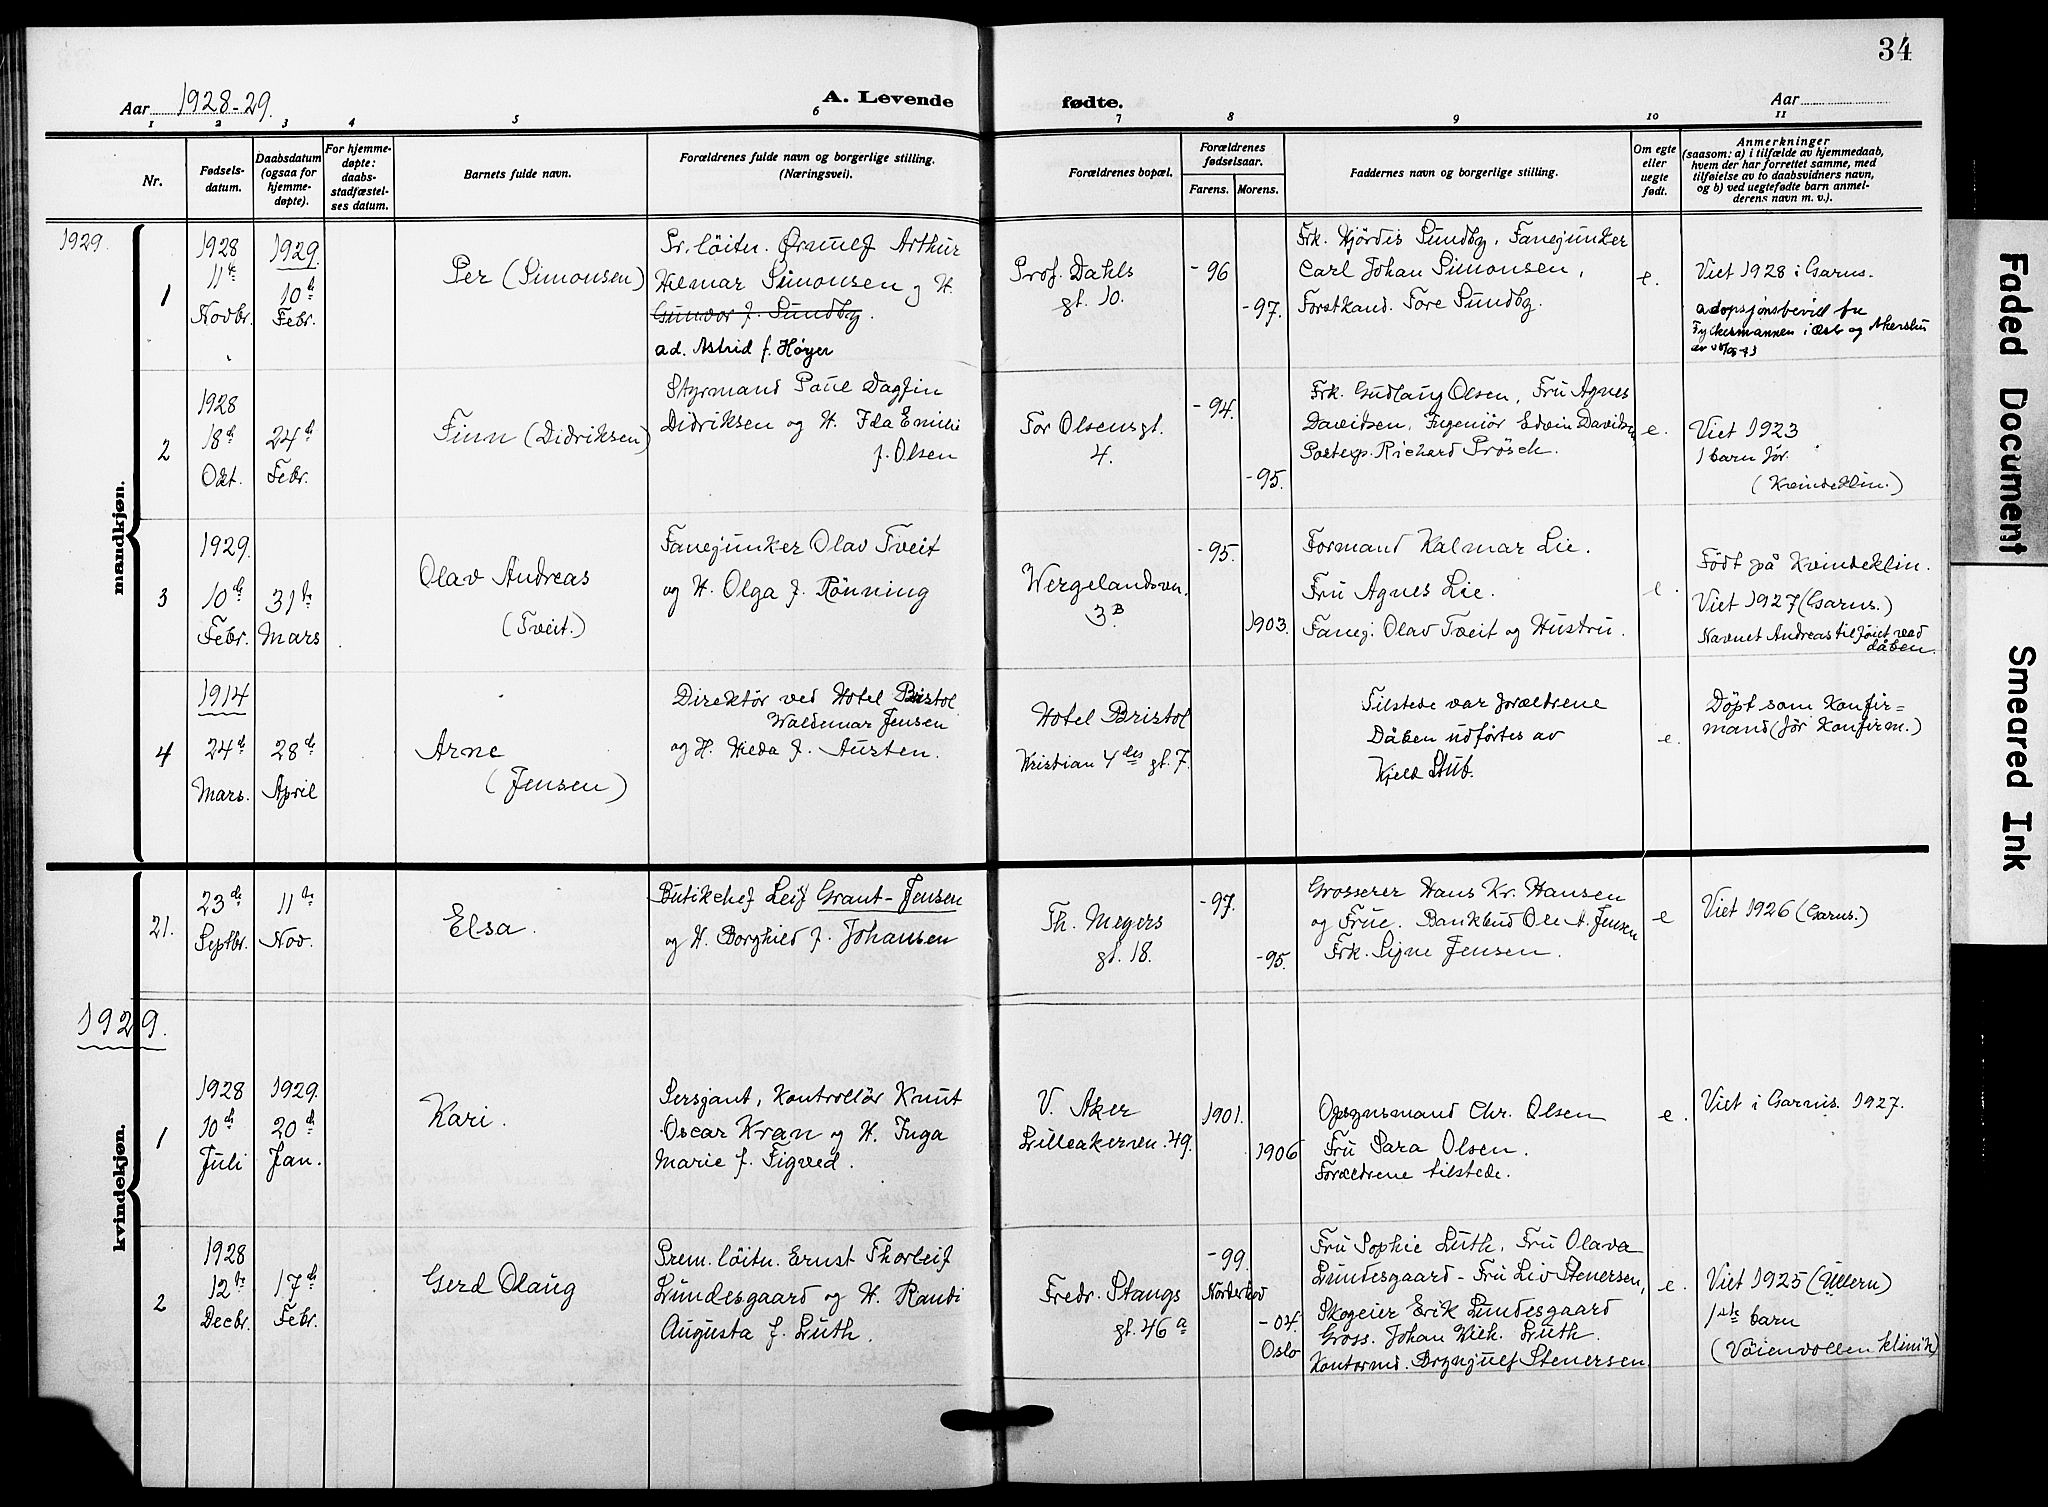 34
Aar 1928-29.
A. Levende fødte.
Aar
1 2 3 4 5 6 7 8 9 10 11
Nr.
Fødsels-
datum.
Daabsdatum
(ogsaa for
hjemme-
døpte).
For hjemme-
døpte:
daabs-
stadfæstel-
ses datum.
Barnets fulde navn.
Forældrenes fulde navn og borgerlige stilling.
(Næringsvei).
Forældrenes bopæl.
Forældrenes
fødselsaar.
Farens. Morens.
Faddernes navn og borgerlige stilling.
Om egte
eller
uegte
født.
Anmerkninger
(saasom: a) i tilfælde av hjemmedaab,
hvem der har forrettet samme, med
tilføielse av to daabsvidners navn,
og b) ved uegtefødte barn anmel-
derens navn m. v.).
mandkjøn.
1929.
1
1928
11te
Novbr.
1929.
10de
Febr.
Per (Simonsen)
Pr. löitn. Ørnulf Arthur
Hilmar Simonsen og H.
Gunvor f. Sundby.
ad. Astrid f. Høyer
Prof. Dahls
gt. 10.
-96
-97.
Frk. Hjördis Sundby. Fanejunker
Carl Johan Simonsen,
Forstkand. Tore Sundby.
e.
Viet 1928 i Garns.
adopsjonsbevill fra
Fylkesmannen i Oslo og Akershus
2
1928
18de
Okt.
24de
Febr.
Finn (Didriksen)
Styrmand Paul Dagfin
Didriksen og H. Ida Emilie
f. Olsen
Tor Olsens gt.
4.
-94.
-95.
Frk. Gudlaug Olsen, Fru Agnes
Davidsen, Ingeniör Edvin Davidsen
Postexp. Richard Prösch.
e.
Viet 1923
1 barn før.
(Kvindeklin.)
3
1929.
10de
Febr.
31te
Mars
Olav Andreas
(Tveit.)
Fanejunker Olav Tveit
og H. Olga f. Rönning
Wergelandsvn.
3B.
-95.
1903.
Formand Kalmar Lie.
Fru Agnes Lie.
Fanej. Olav Tveit og Hustru.
e.
Født på Kvindeklin.
Viet 1927 (Garns.)
Navnet Andreas tilføiet ved
dåben.
4
1914
24de
Mars.
28de
April
Arne
(Jensen)
Direktör ved Hotel Bristol
Waldemar Jensen
og H. Hilda f. Austen.
Hotel Bristol
Kristian 4des gt. 7.
Tilstede var forældrene
Dåben udførtes av
Kjeld Stub.
e.
Döpt som Konfir=
mand (før Konfirm.)
kvindekjøn.
21.
23de
Septbr.
11te
Nov.
Elsa.
Butikchef Leif Grant-Jensen
og H. Borghild f. Johansen
Th. Meyers
gt. 18.
-97.
-95.
Grosserer Hans Kr. Hansen
og Frue. Bankbud Ole A. Jensen
Frk. Signe Jensen.
e
Viet 1926 (Garns.)
1929.
1
1928
10de
Juli
1929.
20de
Jan.
Kari.
Sersjant, Kontrollör Knut
Oscar Kran og H. Inga
Marie f. Figved.
V. Aker
Lilleakervn. 49.
1901.
1906
Opsynsmand Chr. Olsen
Fru Sara Olsen.
Forældrene tilstede.
e.
Viet i Garnis. 1927.
2
1928
12te
Decbr.
17de
Febr.
Gerd Olaug
Prem. löitn. Ernst Thorleif
Lundesgaard og H. Randi
Augusta f. Luth.
Fredr. Stangs
gt. 46a
-99.
Norderhov
-04.
Oslo
Fru Sophie Luth, Fru Olava
Lundesgaard - Fru Liv Stenersen,
Skogeier Erik Lundesgaard
Gross. Johan Wilh. Luth.
Kontormd. Brynjulf Stenersen.
e.
Viet 1925 (Ullern)
1ste barn
(Vöienvollen klinik)
Faded Document
Smeared Ink